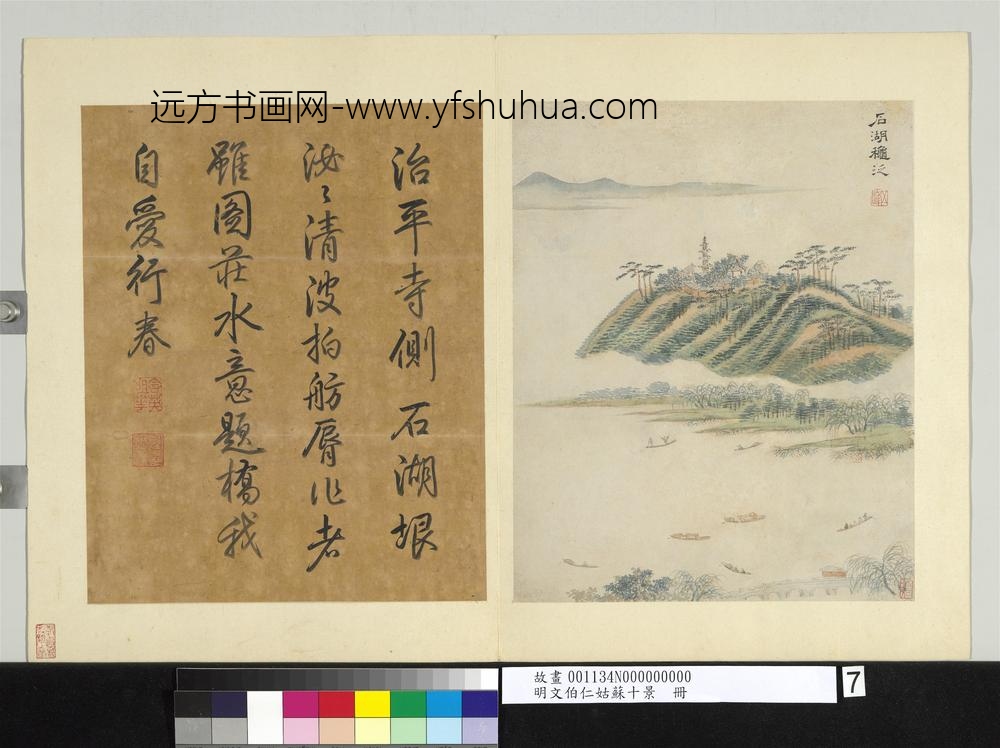 远方书画网-www.yfshuhua.com
石湖穐泛
治平寺側石湖垠
泌〻清波拍舫脣作者
雖圖莊水意題橋我
自愛行春
故畫 001134N000000000
明文伯仁姑蘇十景 冊
7